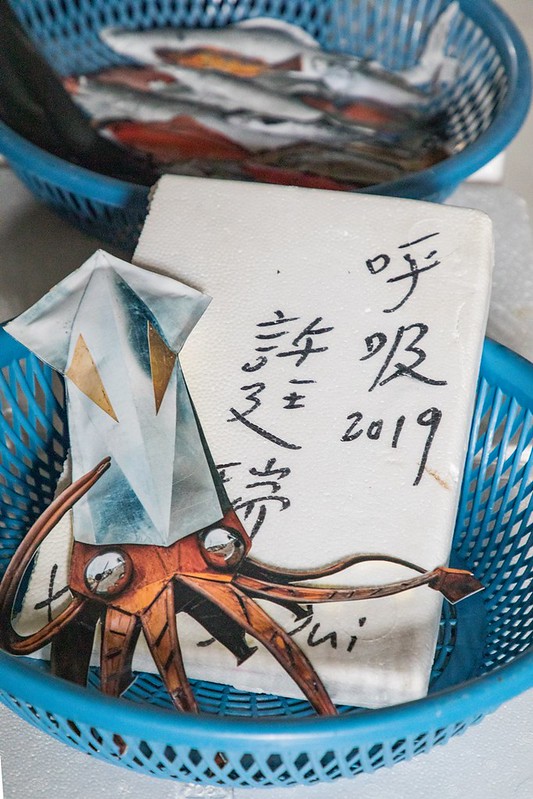 呼吸
2019
許廷瑞